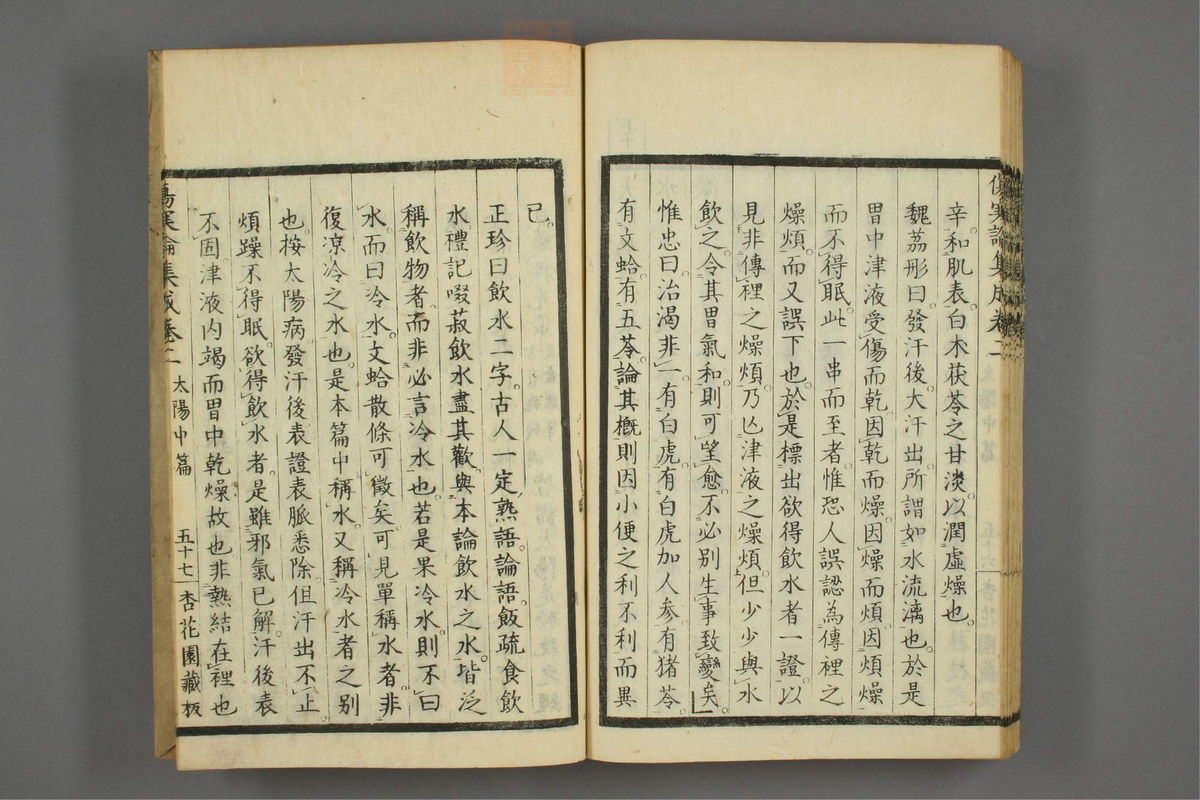 傷寒論集成卷二
辛。和肌表。白朮茯苓之甘淡。以潤虛燥也。
魏荔彤曰。發汗後。大汗出。所謂如水流漓也。於是
胃中津液受傷而乾。因乾而燥。因燥而煩。因煩燥
而不得眠。此一串而至者。惟恐人誤認為傳裡之
燥煩。而又誤下也。於是標出欲得飲水者一證。以
見非傳裡之燥煩。乃亾津液之燥煩。但少少與水
飲之。令其胃氣和則可望愈。不必別生事致變矣。
惟忠曰。治渴非一。有白虎。有白虎加人參。有猪苓。
有文蛤。有五苓。論其概則因小便之利不利而異
已。
正珍曰。飲水二字。古人一定熟語。論語。飯疏食飲
水。禮記。啜菽飲水盡其歡。與本論飲水之水。皆泛
稱飲物者。而非必言冷水也。若是果冷水。則不曰
水。而曰冷水。文蛤散條可徵矣。可見單稱水者。非
復凉冷之水也。是本篇中稱水。又稱冷水者之別
也。按太陽病發汗後。表證表脈悉除。但汗出不止。
煩躁不得眠。欲得飲水者。是雖邪氣已解。汗後表
不固。津液内竭而胃中乾燥故也。非熱結在裡也
傷寒論集成卷二 太陽中篇 五十七 杏花園藏板